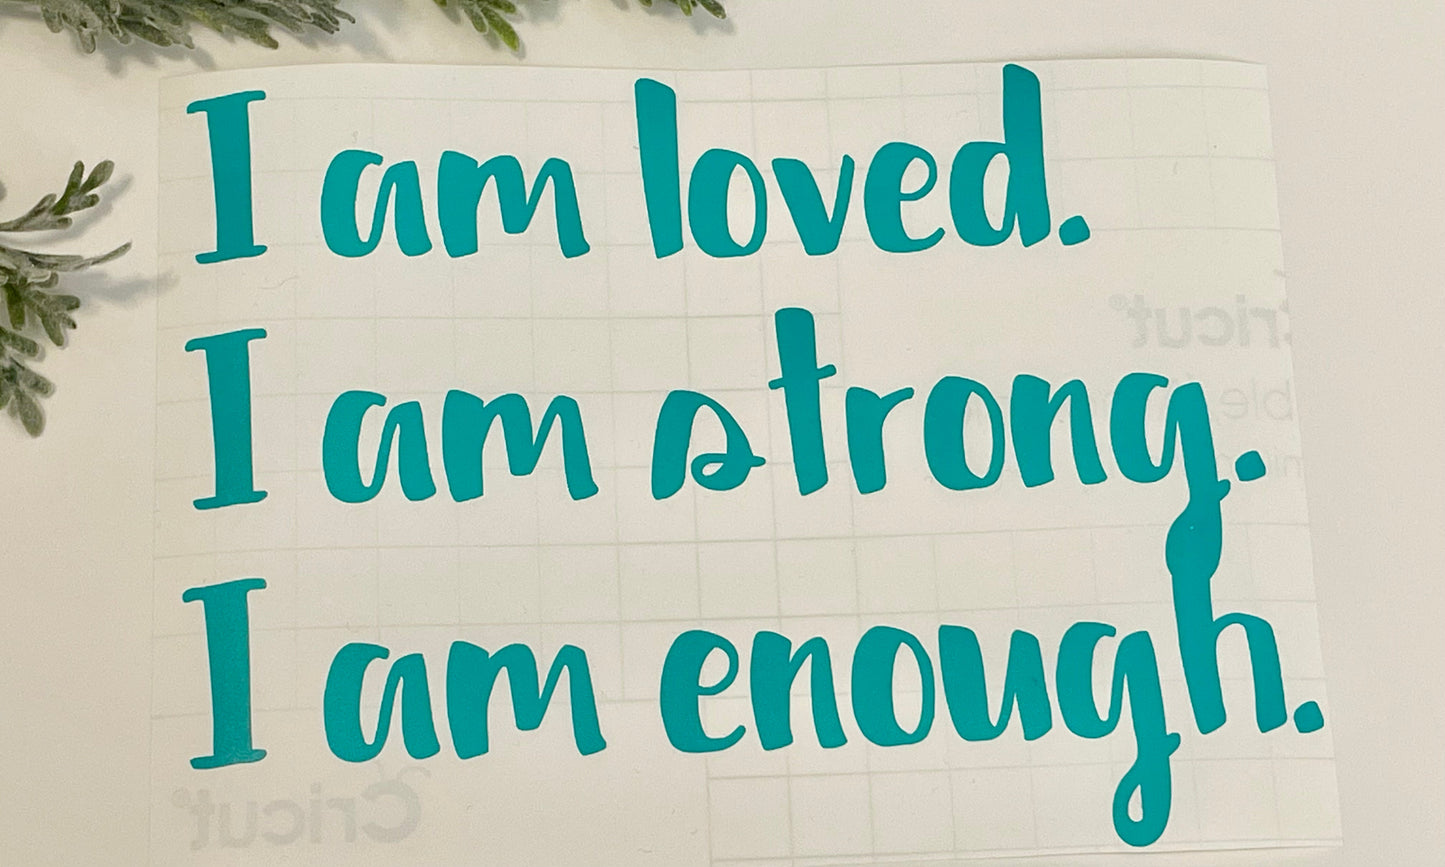 I am loved.
Cricut
I am strong.
I am enough.
Cricut